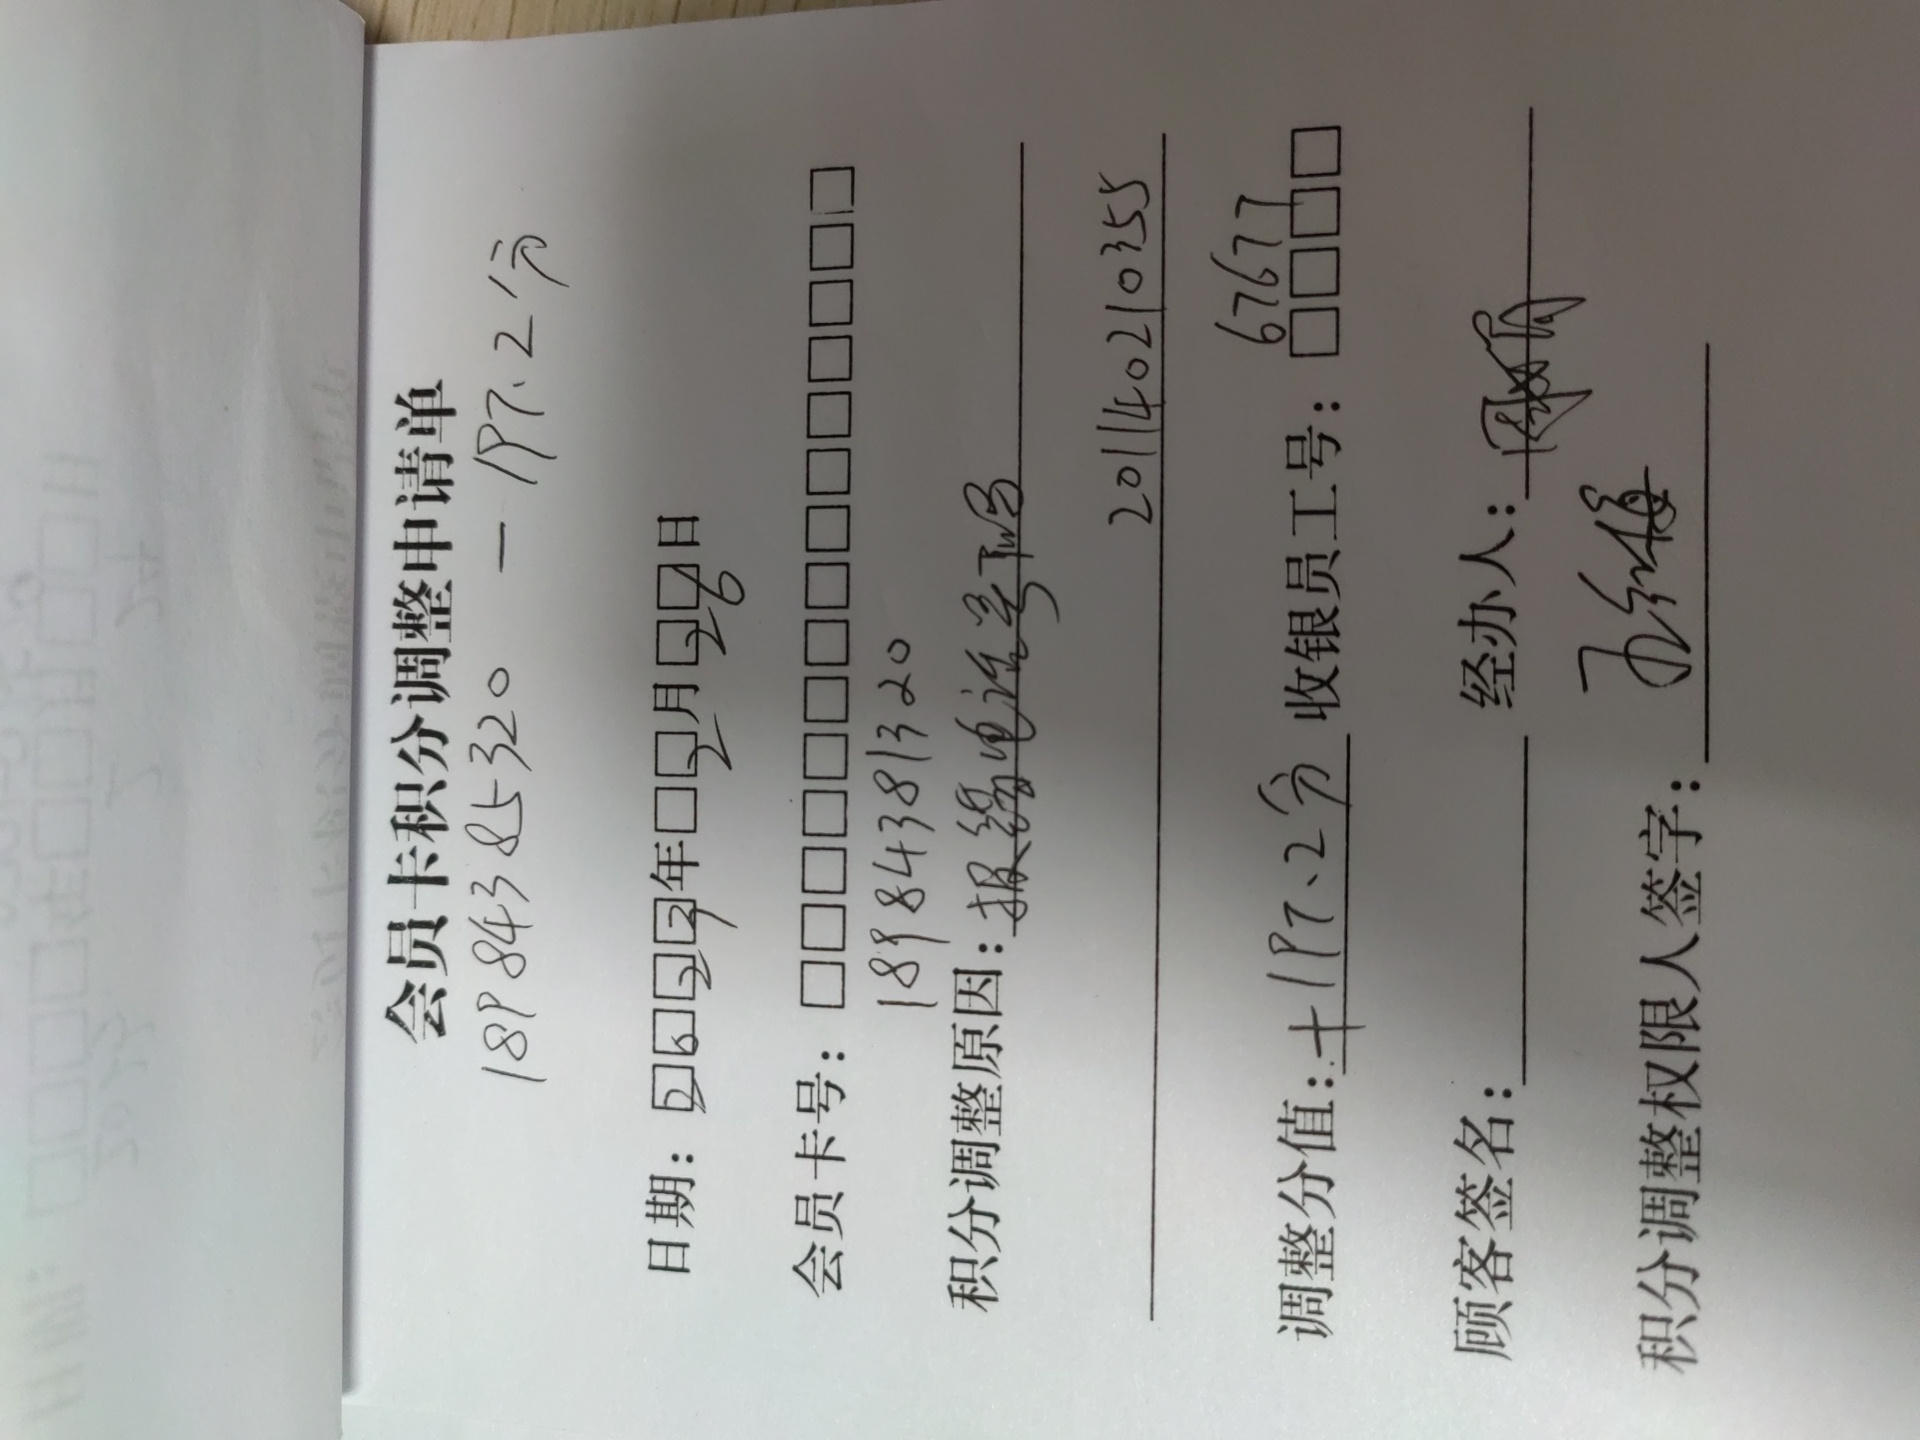 会员卡积分调整申请单
18984385320 — 197.2分
日期：2022年2月26日
会员卡号：□□□□□□□□□□□□□□□
18984381320
积分调整原因：报错电话号码
2011140210355
调整分值：+197.2分 收银员工号：6767
顾客签名： 经办人：
积分调整权限人签字：